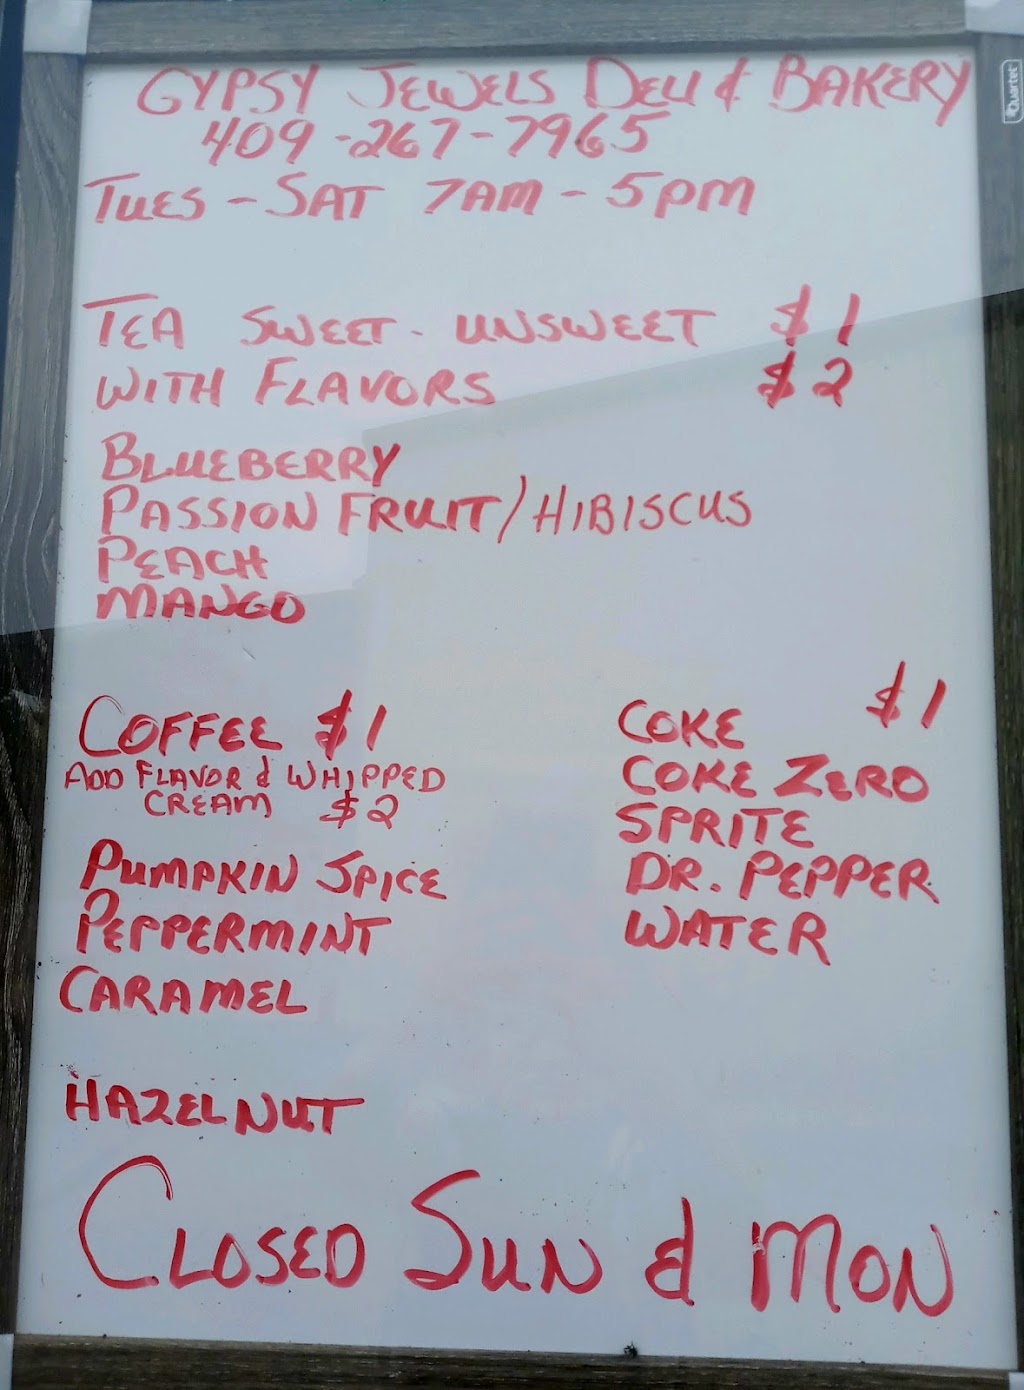 GYPSY JEWELS DELI & BAKERY
Quartet
409-267-7965
TUES - SAT 7AM - 5PM
TEA SWEET - UNSWEET $1
WITH FLAVORS $2
BLUEBERRY
PASSION FRUIT/HIBISCUS
PEACH
MANGO
COFFEE $1
ADD FLAVOR & WHIPPED
CREAM $2
PUMPKIN SPICE
PEPPERMINT
CARAMEL
HAZELNUT
$1
COKE
COKE ZERO
SPRITE
DR. PEPPER
WATER
CLOSED SUN & MON